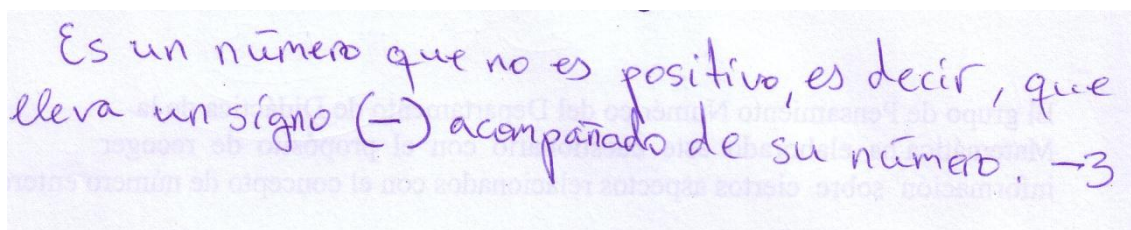 Es un número que no es positivo, es decir, que
lleva un signo (-) acompañado de su número. -3